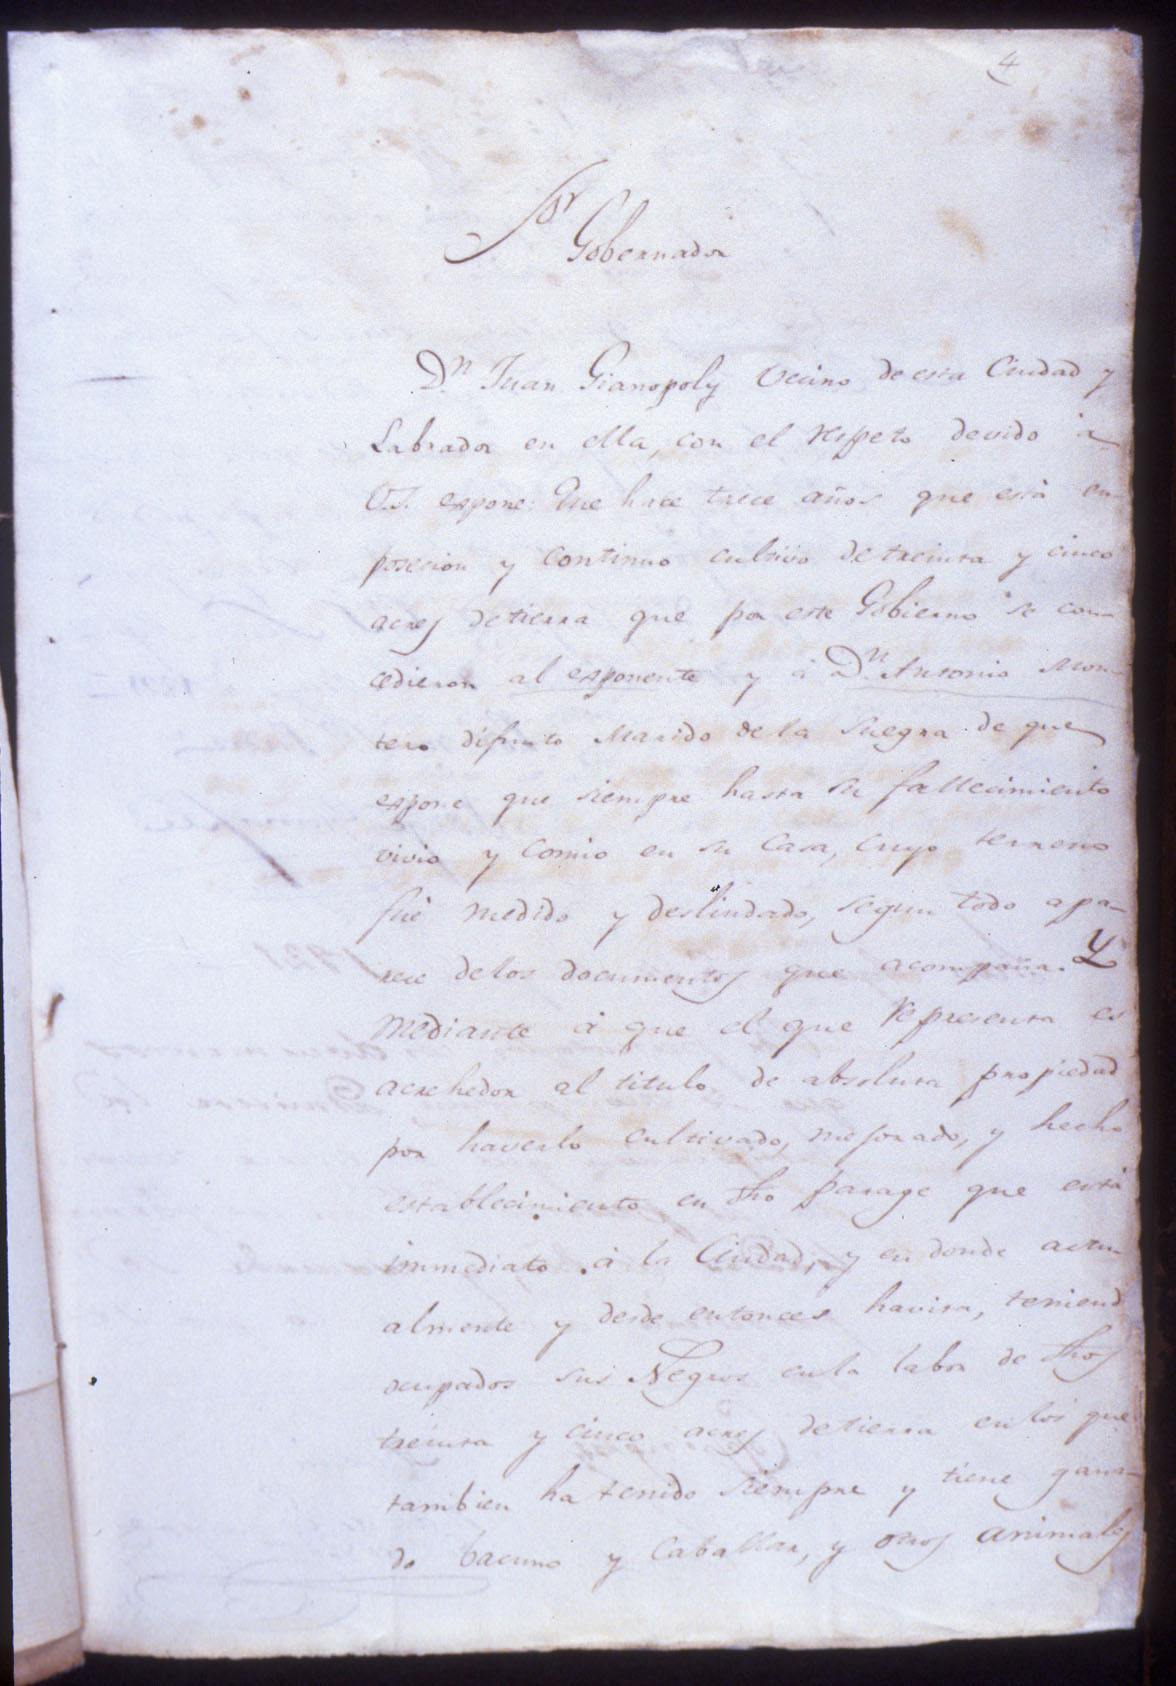 4
Sor
Gobernador
Dn Juan Gianopoly Vecino de esta Ciudad y
Labrador en ella, con el respeto devido à
V.S. expone: Que hace trece años que està en
posecion y continuo cultivo de treinta y cinco
acres de tierra que por este Gobierno se con-
cedieron al exponente y à Dn Antonio Mon-
tero difunto Marido de la Suegra de que
expone que siempre hasta su fallecimiento
vivio y comio en su Casa, cuyo terreno
fuè medido y deslindado, segun todo apa-
rece de los documentos que acompaña. Y
mediante à que el que representa es
acrehedor al titulo de absoluta propiedad
por haverlo cultivado, mejorado, y hecho
establecimiento en dho parage que està
immediato à la Ciudad, y en donde actu-
almente y desde entonces havita, teniend
ocupados sus Negros en la labor de dhos
treinta y cinco acres de tierra en los que
tambien ha tenido siempre y tiene gana-
do bacuno y Caballar, y otros animales